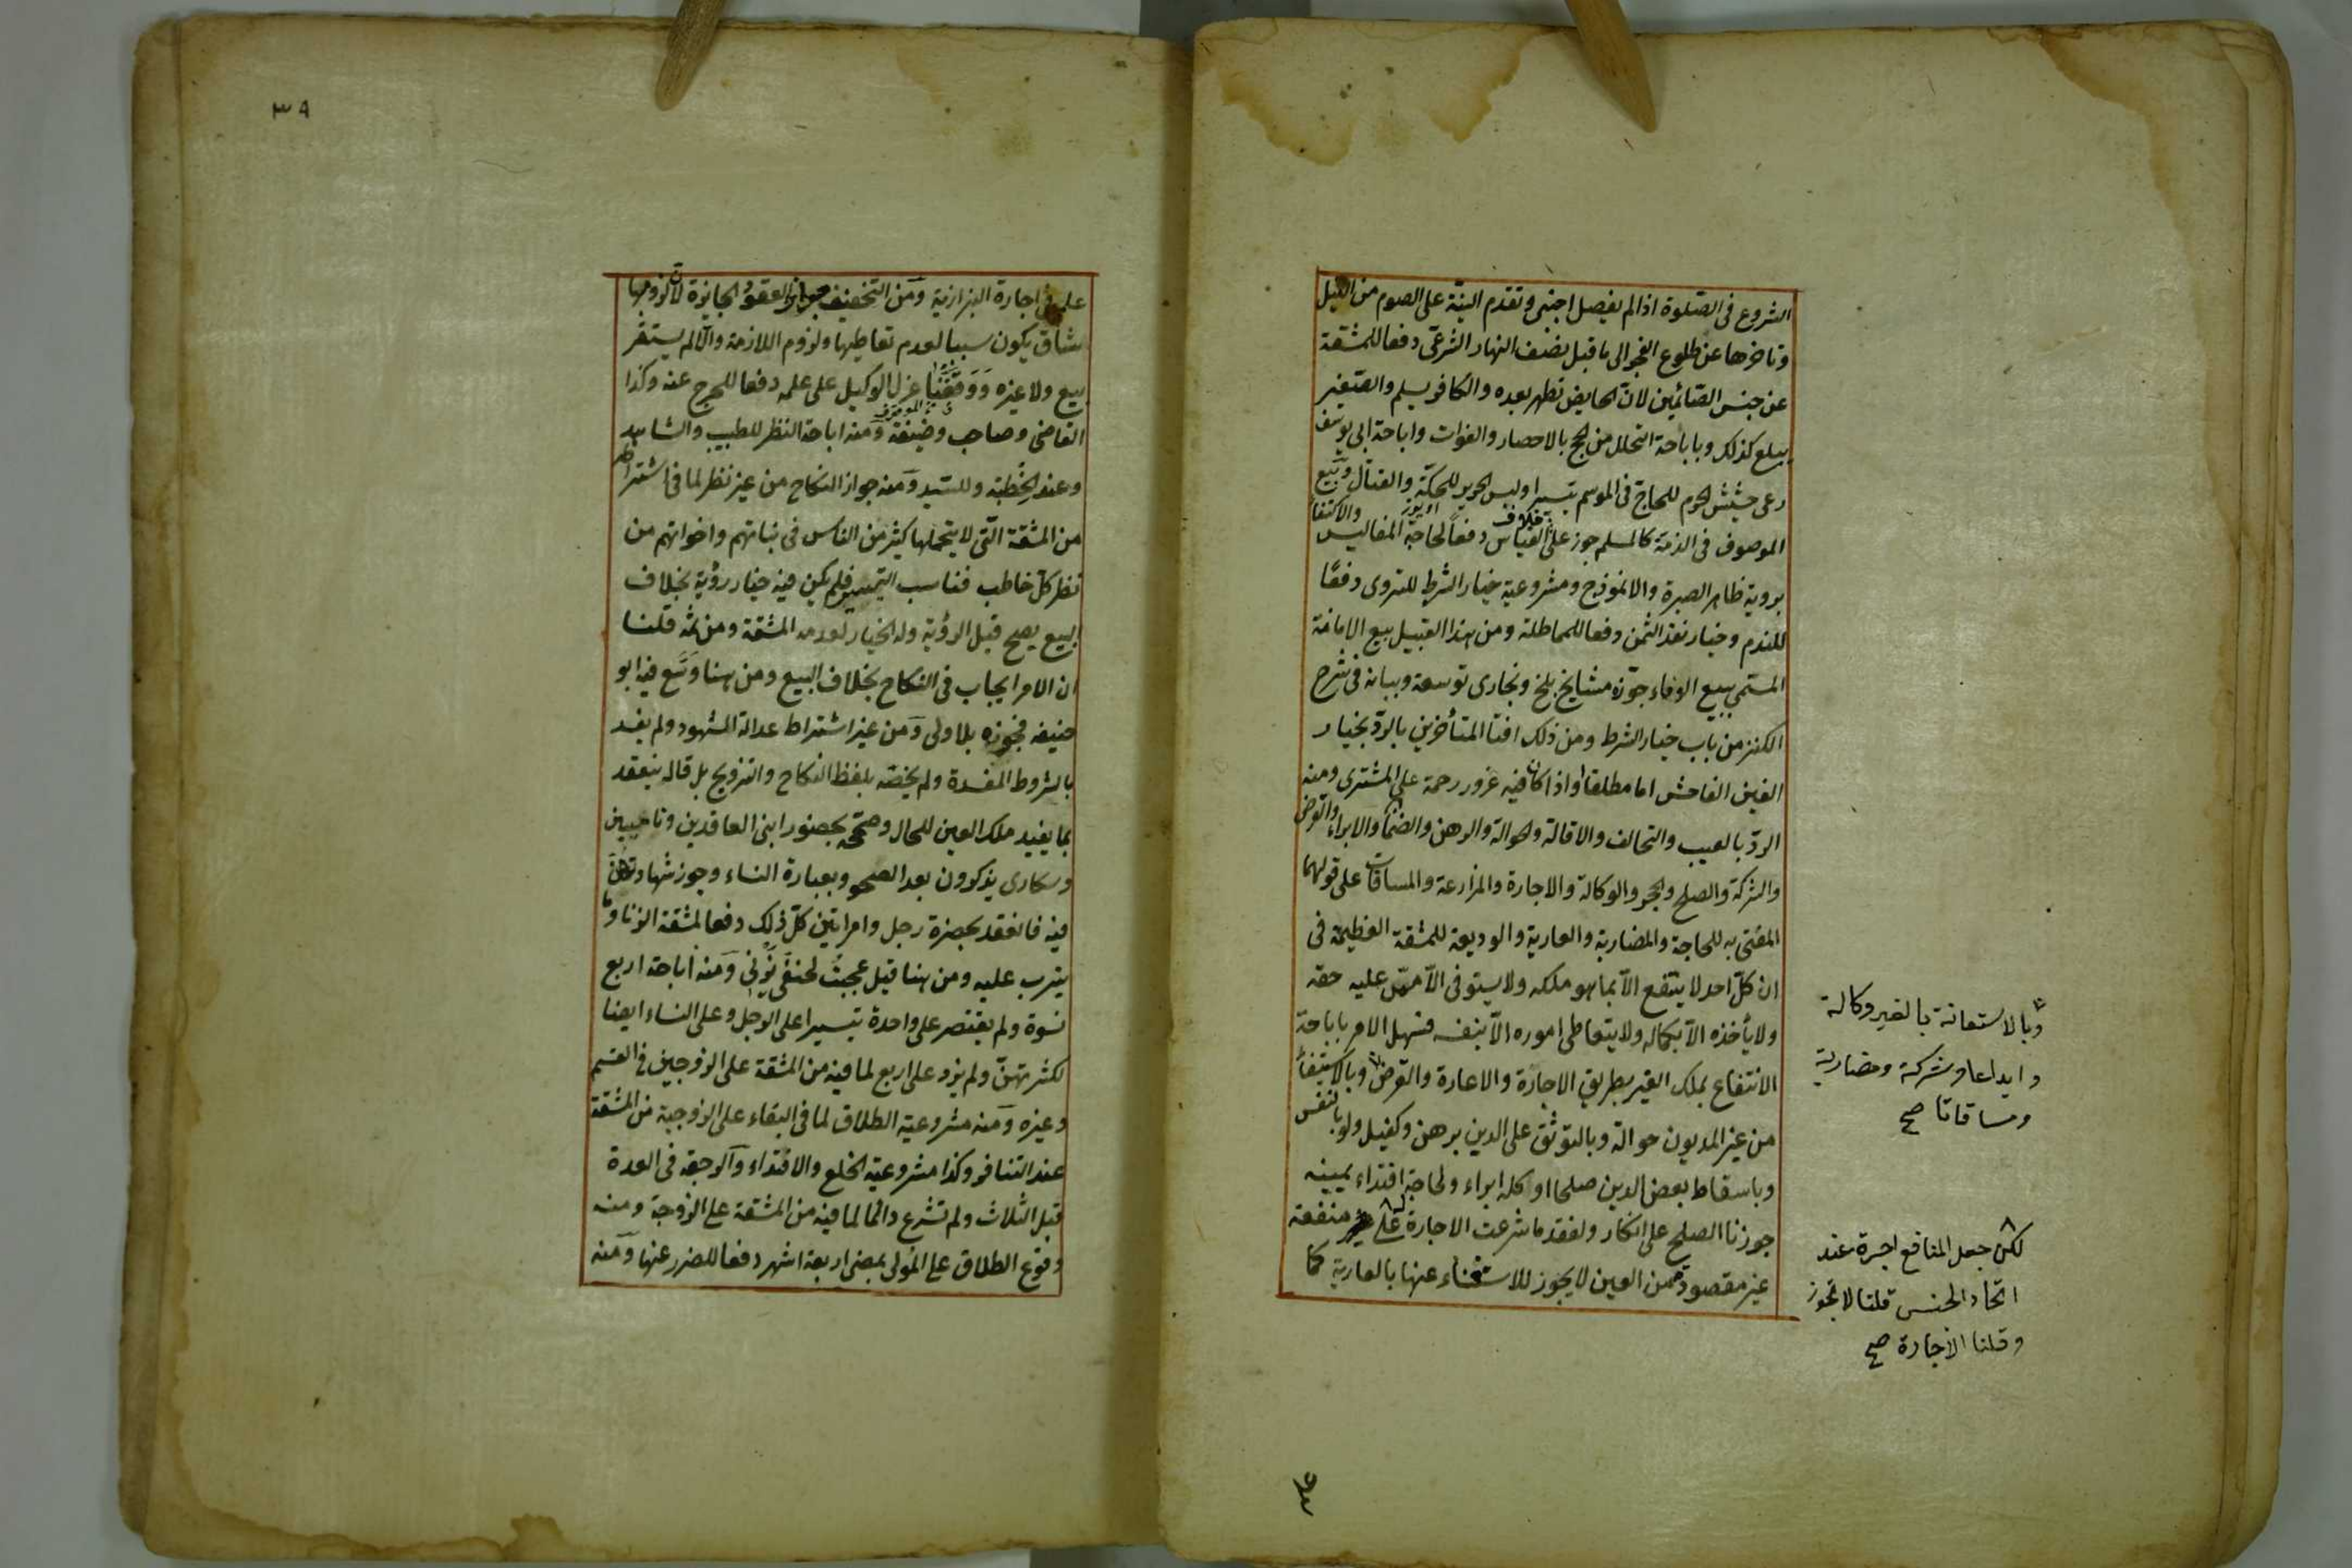 الشروع فى الصلوة اذا لم يفصل اجنبى وتقدم النية على الصوم من الليل
وتاخرها عن طلوع الفجر الى ما قبل نصف النهار الشرعى دفعا للمشقة
عن جنس الصائمين لان الحايض تطهر بعده والكافر يسلم والصغير
يبلغ كذلك وباباحة التحلل من الحج بالاحصار والفوات واباحة ابى يوسف
رعى حشيش الحرم للحاج فى الموسم تيسيرا ولبس الحرير للحكة والقتال وبيع
الموصوف فى الذمة كالسلم جوز على خلاف القياس دفعا لحاجة المفاليس والاكتفا
بروية ظاهر الصبرة والانموذج ومشروعية خيار الشرط للتروى دفعا
للندم وخيار نقد الثمن دفعا للمماطلة ومن هذا القبيل بيع الامانة
المسمى ببيع الوفاء جوزه مشايخ بلخ وبخارى توسعة وبيانه فى شرح
الكنز من باب خيار الشرط ومن ذلك افتا المتأخرين بالرد بخيار
الغبن الفاحش اما مطلقا او اذا كان فيه غرور رحمة على المشترى ومنه
الرد بالعيب والتحالف والاقالة والحوالة والرهن والضمان والابراء والقرض
والشركة والصلح والحجر والوكالة والاجارة والمزارعة والمساقات على قولهما
المفتى به للحاجة والمضاربة والعارية والوديعة للمشقة العظيمة فى
ان كل احد لا ينتفع الا بما هو ملكه ولا يستوفى الا ممن عليه حقه
ولا يأخذه الا بكماله ولا يتعاطى اموره الا بنفسه فسهل الامر باباحة
الانتفاع بملك الغير بطريق الاجارة والاعارة والقرض وبالاستيفاء
من غير المديون حوالة وبالتوثق على الدين برهن وكفيل ولو بالنفس
وباسقاط بعض الدين صلحا او كله ابراء ولحاجة افتداء يمينه
جوزنا الصلح على انكار ولفقد ما شرعت الاجارة على منفعة
غير مقصودة من العين لا يجوز للاستغناء عنها بالعارية كما
وبالاستعانة بالغير وكالة
وايداعا وشركة ومضاربة
ومساقاتا صح
لكن جعل المنافع اجرة عند
اتحاد الجنس قلنا لا تجوز
وقلنا الاجارة صح
٣٩
علم فى اجارة البزازية ومن التخفيف جواز العقود الجايزة لان لزومها
شاق يكون سببا لعدم تعاطيها ولزوم اللازمة والا لم يستقر
بيع ولا غيره ووقفنا عزل الوكيل على علمه دفعا للحرج عنه وكذا
القاضى وصاحب وضيفة ومنه اباحة النظر للطبيب والشاهد
وعند الخطبة وللسيد ومنه جواز النكاح من غير نظر لما فى اشتراطه
من المشقة التى لا يتحملها كثير من الناس فى بناتهم واخواتهم من
نظر كل خاطب فناسب التيسير فلم يكن فيه خيار رؤية بخلاف
البيع يصح قبل الرؤية وله الخيار لعدم المشقة ومن ثمه قلنا
ان الامر ايجاب فى النكاح بخلاف البيع ومن هنا وسع فيه ابو
حنيفه فجوزه بلا ولى ومن غير اشتراط عدالة الشهود ولم يفسد
بالشروط المفسدة ولم يخصه بلفظ النكاح والتزويج بل قال ينعقد
بما يفيد ملك العين للحال وصححه بحضور ابنى العاقدين وناعسين
وسكارى يذكرون بعد الصحو وبعبارة النساء وجوز شهادتهن
فيه فانعقد بحضرة رجل وامراتين كل ذلك دفعا لمشقة الزنا وما
يترب عليه ومن هنا قيل عجبت لحنفى يزنى ومنه اباحة اربع
نسوة ولم يقتصر على واحدة تيسيرا على الرجل وعلى النساء ايضا
لكثرتهن ولم يزد على اربع لما فيه من المشقة على الزوجين فى القسم
وغيره ومنه مشروعية الطلاق لما فى البقاء على الزوجية من المشقة
عند التنافر وكذا مشروعية الخلع والافتداء والرجعة فى العدة
قبل الثلاث ولم تشرع دائما لما فيه من المشقة على الزوجة ومنه
وقوع الطلاق على المولى بمضى اربعة اشهر دفعا للضرر عنها ومنه